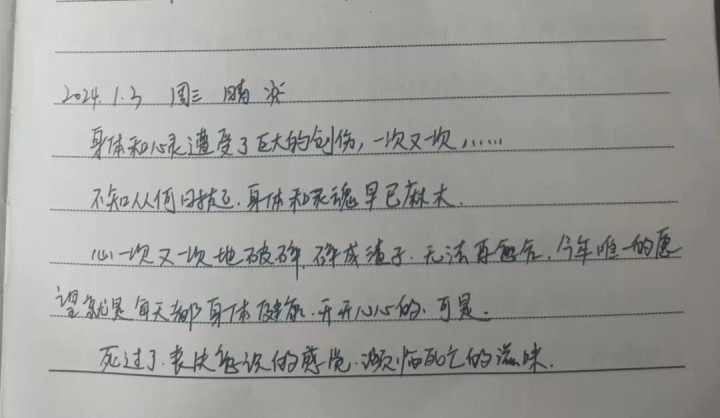 2024.1.3 周三 晴
身体和心灵遭受了巨大的创伤，一次又一次，……
不知从何时起，身体和灵魂早已麻木.
心一次又一次地破碎，碎成渣子.无法再愈合.今年唯一的愿
望就是每天都身体健康.开开心心的.可是.
死过了.丧失意识的感觉.濒临死亡的滋味.